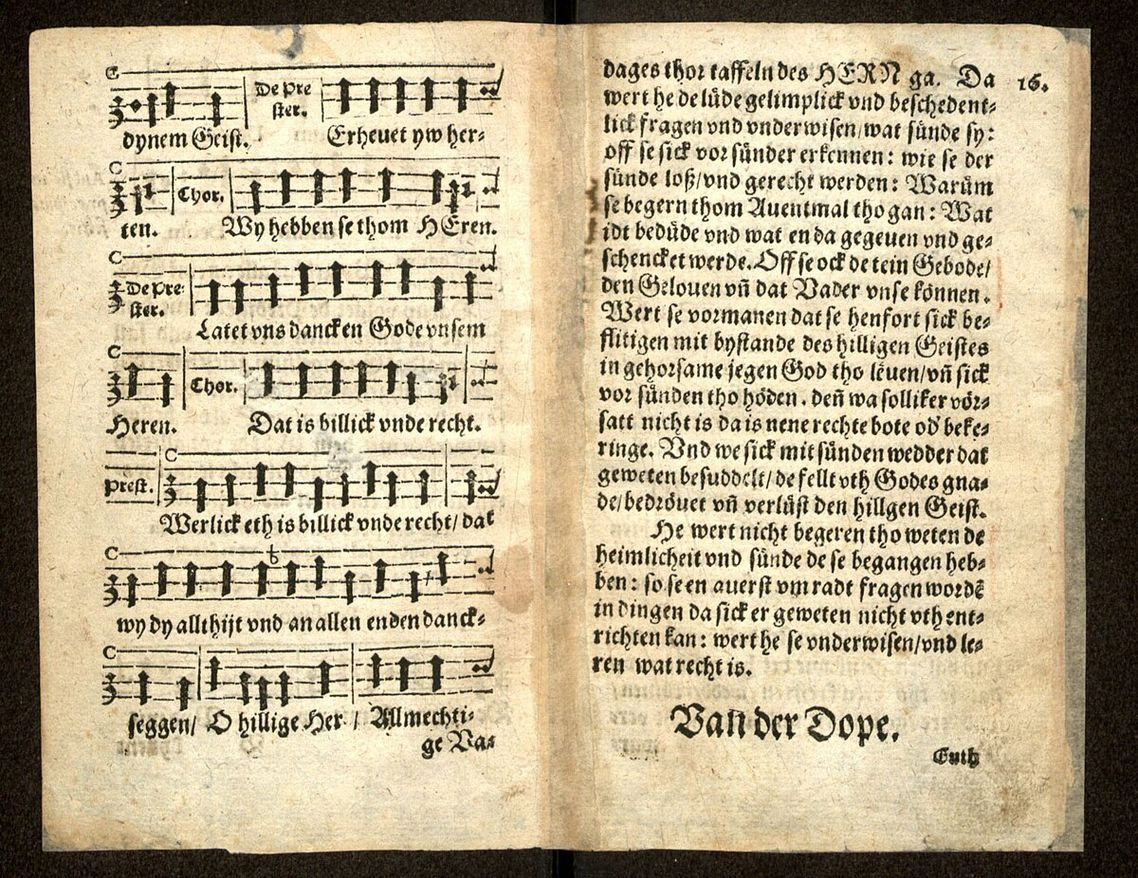 De Pre
ster.
dynem Geist. Erheuet yw her⸗
Chor.
ten. Wy hebben se thom HEren.
De Pre⸗
ster.
Latet vns dancken Gode vnsem
Chor.
Heren. Dat is billick vnde recht.
Prest.
Werlick eth is billick vnde recht/ dat
wy dy allthijt vnd an allen enden danck⸗
seggen/ O hillige Her / Allmechti⸗
ge Va⸗
16.
dages thor taffeln des HERN ga. Da
wert he de lüde gelimplick vnd beschedent⸗
lick fragen vnd vnderwisen/ wat sünde sy:
off se sick vor sünder erkennen: wie se der
sünde loß/ vnd gerecht werden: Warüm
se begern thom Auentmal tho gan: Wat
idt bedüde vnd wat en da gegeuen vnd ge⸗
schencket werde. Off se ock de tein Gebode/
den Gelouen vñ dat Vader vnse können.
Wert se vormanen dat se henfort sick be⸗
flitigen mit bystande des hilligen Geistes
in gehorsame jegen God tho lëuen/ vñ sick
vor sünden tho höden. deñ wa solliker vör⸗
satt nicht is da is nene rechte bote od' beke⸗
ringe. Vnd we sick mit sünden wedder dat
geweten besuddelt/ de fellt vth Godes gna⸗
de/ bedröuet vñ verlüst den hillgen Geist.
He wert nicht begeren tho weten de
heimlicheit vnd sünde de se begangen heb⸗
ben: so se en auerst vm radt fragen wordē
in dingen da sick er geweten nicht vth ent⸗
richten kan: wert he se vnderwisen/ vnd le⸗
ren wat recht is.
Van der Dope.
Euth